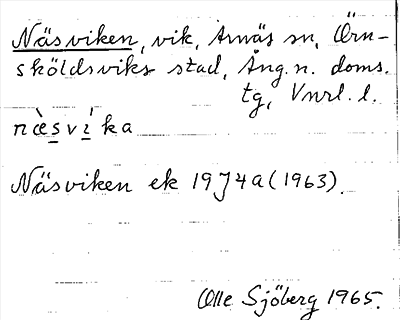 Näsviken, vik, Arnäs sn, Örn-
sköldsviks stad, Ång. n. doms.
tg, Vnrl. l.
nὲsvìka
Näsviken ek 19J4a (1963).
Olle Sjöberg 1965.